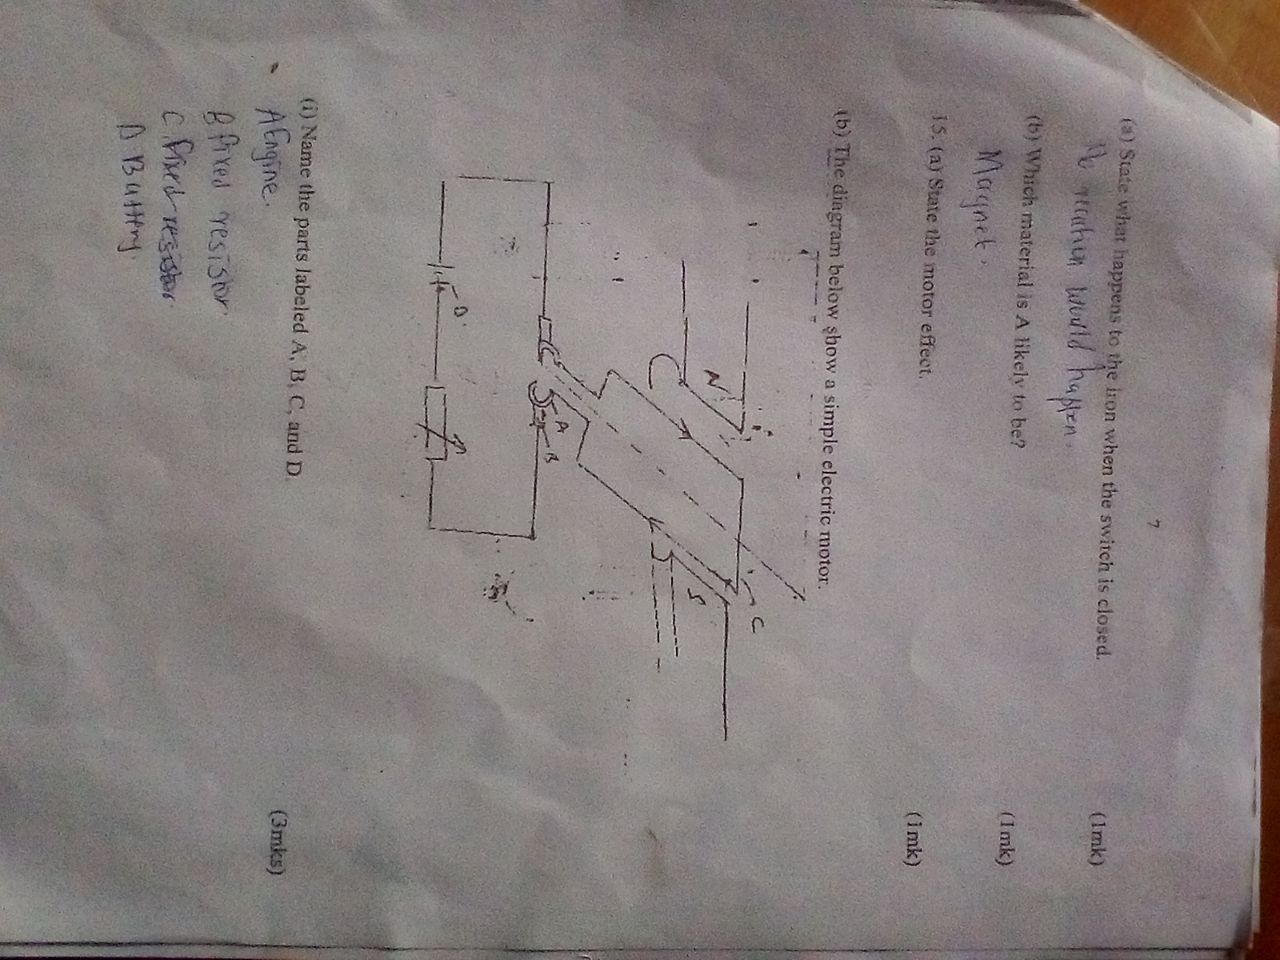 7
(a) State what happens to the iron when the switch is closed. (1mk)
No would happen.
(b) Which material is A likely to be? (1mk)
Magnet.
15. (a) State the motor effect. (1mk)
(b) The diagram below show a simple electric motor.
N
C
S
A
B
D
(i) Name the parts labeled A, B, C, and D. (3mks)
A Engine.
B fixed resistor.
C fixed resistor
D Battery.